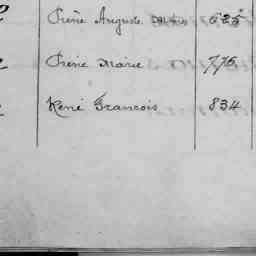 Pierre Auguste 525
Pierre Marie 776
René Francois 834